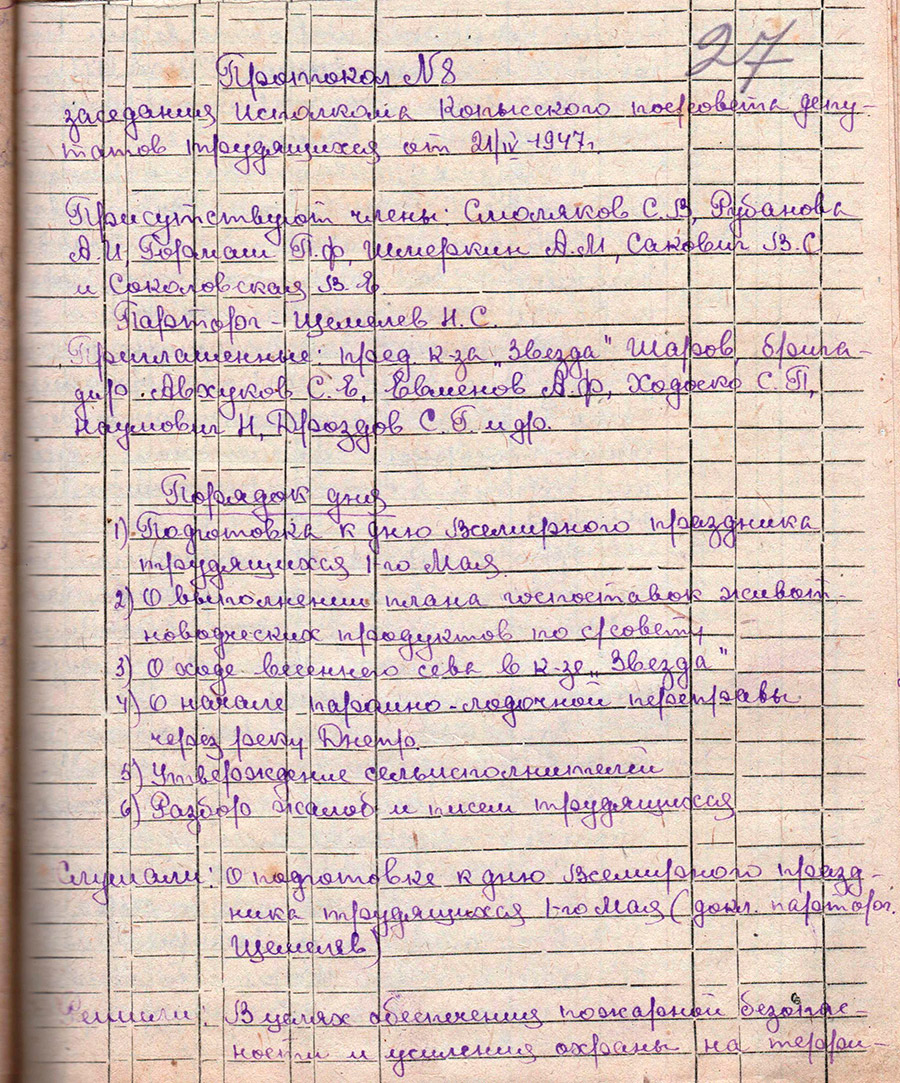 27
Протокол №8
заседания Исполкома Копысского пос/совета депу-
татов трудящихся от 21/IV-1947г.
Присутствуют члены: Смоляков С.В, Рубанова
А.И, Гормаш П.Ф, Шмеркин А.М, Сакович В.С
и Соколовская В.Е
Парторг - Щемелев Н.С.
Приглашенные: пред. к-за „Звезда" Шаров, брига-
дир. Авхуков С.Е, Евменов А.Ф, Ходоско С.П,
Наумович Н, Дроздов С.Г. и др.
Порядок дня
1) Подготовка к дню Всемирного праздника
трудящихся 1-го Мая.
2) О выполнении плана госпоставок живот-
новодческих продуктов по с/совету
3) О ходе весеннего сева в к-зе „Звезда"
4) О начале паромно-лодочной переправы
через реку Днепр.
5) Утверждение сельисполнителей
6) Разбор жалоб и писем трудящихся
Слушали: О подготовке к дню Всемирного празд-
ника трудящихся 1-го Мая (докл. парторг.
Щемелев)
Решили: В целях обеспечения пожарной безопас-
ности и усиления охраны на терри-